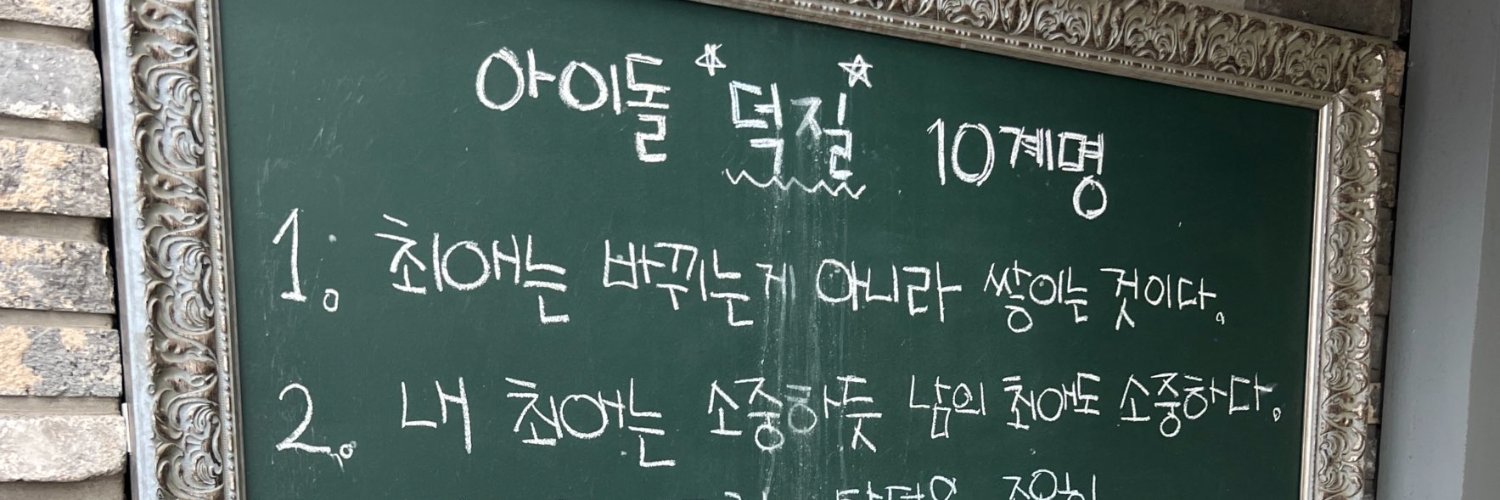 아이돌 *덕질* 10계명
1. 최애는 바뀌는게 아니라 쌓이는 것이다.
2. 내 최애는 소중하듯 남의 최애도 소중하다.